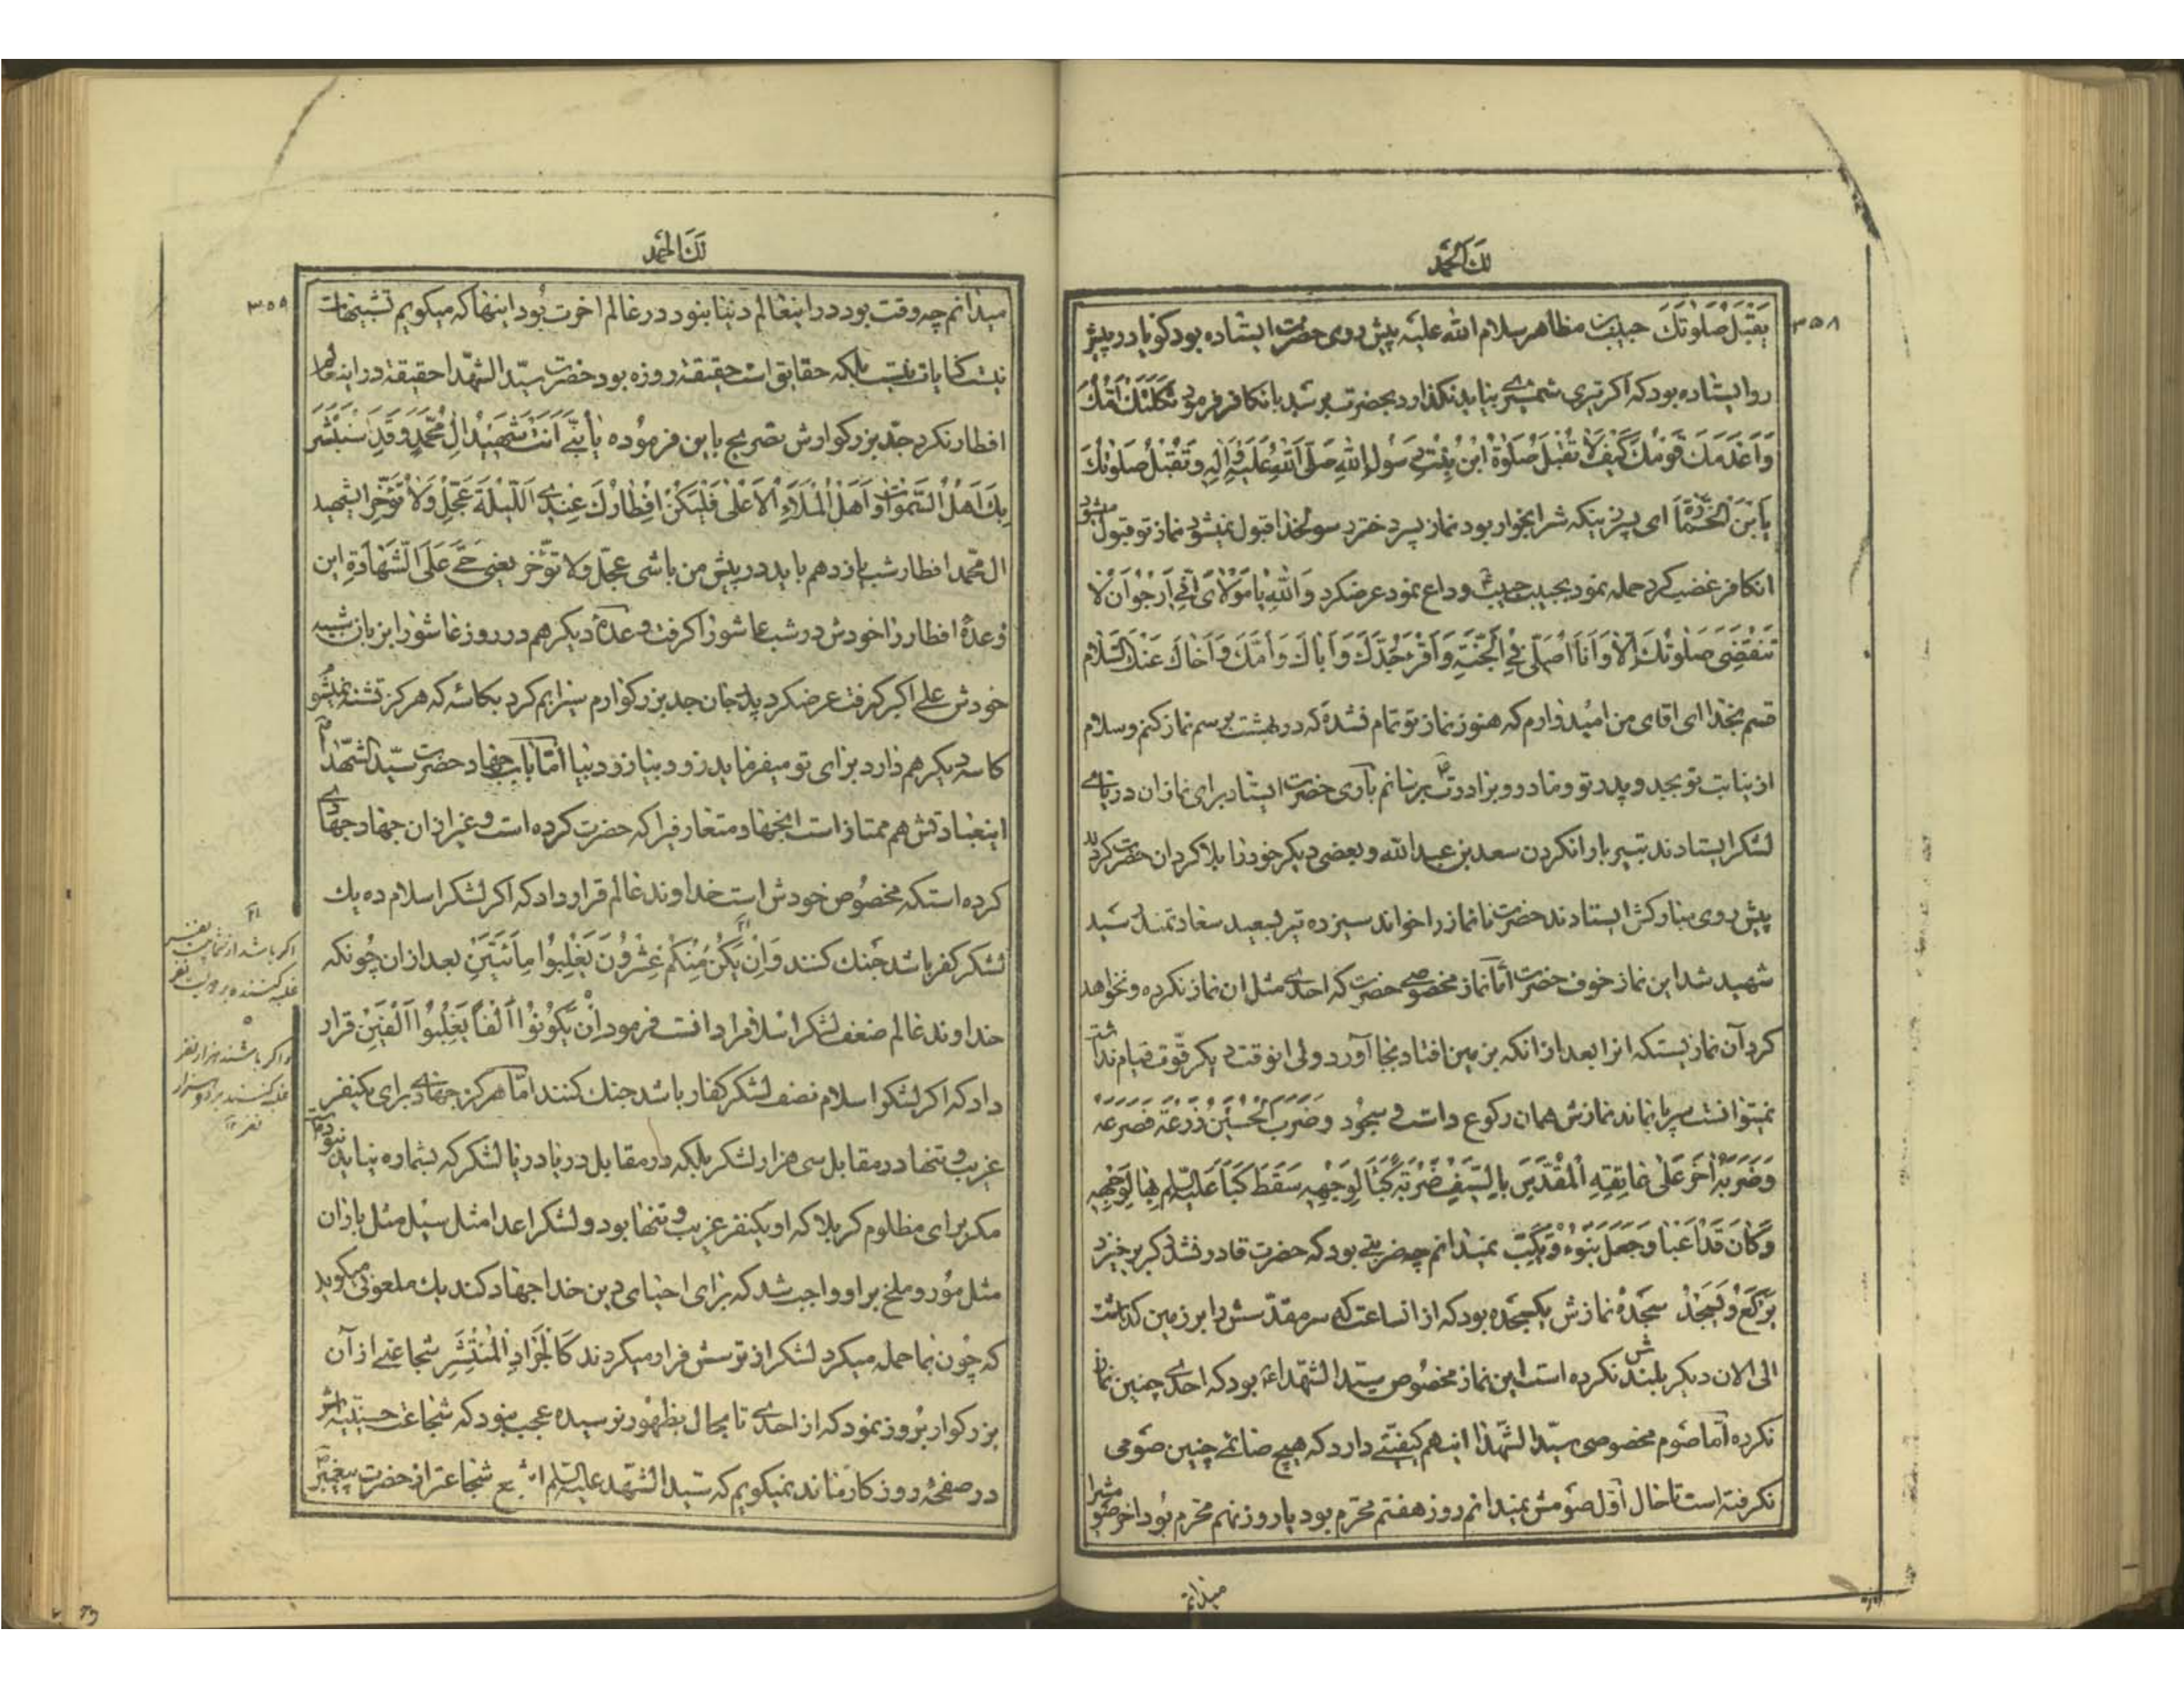 لك الحمد
۳۵۸
یقبل صلوتك حبیب بن مظاهر سلام الله علیه پیش روی حضرت ایستاده بود گویا در پیش
رو ایستاده بود که اکر تیری شمشیری بیاید نکذارد بحضرت برسد بانکافر فرمود ثکلتك امك
و اعدمك قومك کیف لا تقبل صلوة ابن بنت رسول الله صلی الله علیه و اله و تقبل صلوتك
یابن الخمارة ای پسر زنیکه شرابخوار بود نماز پسر دختر رسولخدا قبول نمیشود نماز تو قبول میشود
انکافر غضب کرد حمله نمود بحبیب حبیب وداع نمود عرضکرد و الله یا مولای انی ارجو ان لا
تنقضی صلوتك الا و انا اصلی فی الجنة و اقرء جدك و اباك و امك و اخاك عنك السلام
قسم بخدا ای اقای من امیدوارم که هنوز نماز تو تمام نشده که در بهشت برسم نماز کنم و سلام
از نیابت تو بجد و پدر تو و مادر و برادرت برسانم باری حضرت ایستاد برای نماز ان دریای
لشکر ایستادند بتیر باران کردن سعد بن عبد الله و بعضی دیکر خود را بلا کردان حضرت کردند
پیش روی مبارکش ایستادند حضرت تا نماز را خواند سیزده تیر بسعید سعادتمند رسید
شهید شد این نماز خوف حضرت اما نماز مخصوصی حضرت که احدی مثل ان نماز نکرده و نخواهد
کرد آن نمازیستکه انرا بعد از انکه بزمین افتاد بجا آورد ولی انوقت دیکر قوت قیام نداشت
نمیتوانست سر پا بماند نمازش همان رکوع داشت و سجود و ضرب الحسین زرعة فصرعه
و ضربه اخر علی عاتقه المقدس بالسیف ضربة کبا لوجهه سقط کبا علیه السلام بها لوجهه
و کان قد اعیا و جعل ینوء و یکب نمیدانم چه ضربتی بود که حضرت قادر نشد دیکر برخیزد
یرکع و یسجد سجدهٔ نمازش یکسجده بود که از انساعت که سر مقدسش را بر زمین کذاشت
الی الان دیکر بلندش نکرده است این نماز مخصوص سید الشهداء بود که احدی چنین نماز
نکرده اما صوم مخصوصی سید الشهدا اینهم کیفیتی دارد که هیچ صائمی چنین صومی
نکرفته است تا حال اول صومش نمیدانم روز هفتم محرم بود یا روز نهم محرم بود اخر صومش را
میدانم
لك الحمد
۳۵۹
میدانم چه وقت بود در اینعالم دنیا نبود در عالم اخرت بود اینها که میکویم تشبیهات
نیست کنایات نیست بلکه حقایق است حقیقة روزه بود حضرت سید الشهدا حقیقة در اینعالم
افطار نکرد جد بزرکوارش تصریح باین فرموده یا بنی انت شهید ال محمد و قد استبشر
بك اهل السموات و اهل الملاء الاعلی فلیکن افطارك عندی اللیلة عجل و لا تؤخر ایشهید
ال محمد افطار شب یازدهم باید در پیش من باشی عجل و لا تؤخر یعنی حی علی الشهادة این
وعدهٔ افطار را خودش در شب عاشورا کرفت وعدهٔ دیکر هم در روز عاشورا از زبان شبیه
خودش علی اکبر کرفت عرضکرد پدر جان جد بزرکوارم سیرابم کرد بکاسهٔ که هرکز تشنه نمیشوم
کاسه دیکر هم دارد برای تو میفرماید زود بیا زود بیا اما باب جهاد حضرت سید الشهدا
اینعبادتش هم ممتاز است اینجهاد متعارفرا که حضرت کرده است و غیر از ان جهاد جهادی
کرده استکه مخصوص خودش است خداوند عالم قرار داد که اکر لشکر اسلام ده یك
لشکر کفر باشد جنك کنند و ان یکن منکم عشرون یغلبوا مأتین بعد از ان چونکه
خداوند عالم ضعف لشکر اسلامرا دانست فرمود ان یکونوا الفا یغلبوا الفین قرار
داد که اکر لشکر اسلام نصف لشکر کفار باشد جنك کنند اما هرکز جهادی برای یکنفر
غریب و تنها در مقابل سی هزار لشکر بلکه در مقابل دریا دریا لشکر که بشماره نیاید نبود
مکر برای مظلوم کربلا که او یکنفر غریب و تنها بود و لشکر اعدا مثل سیل مثل باران
مثل مور و ملخ بر او واجب شد که برای احیای دین خدا جهاد کند یك ملعونی میکوید
که چون بما حمله میکرد لشکر از ترسش فرار میکردند کالجراد المنتشر شجاعتی از آن
بزرکوار بروز نمود که از احدی تا بحال بظهور نرسیده عجب نبود که شجاعت حسینیه اش
در صفحهٔ روزکار ماند نمیکویم که سید الشهدا علیه السلام اشجع شجاعتر از حضرت پیغمبر
اکر باشد از شما بیست نفر
غلبه کننده بر دویست نفر
و اکر باشند هزار نفر
غلبه کنند بر دو هزار
نفر ۱۲